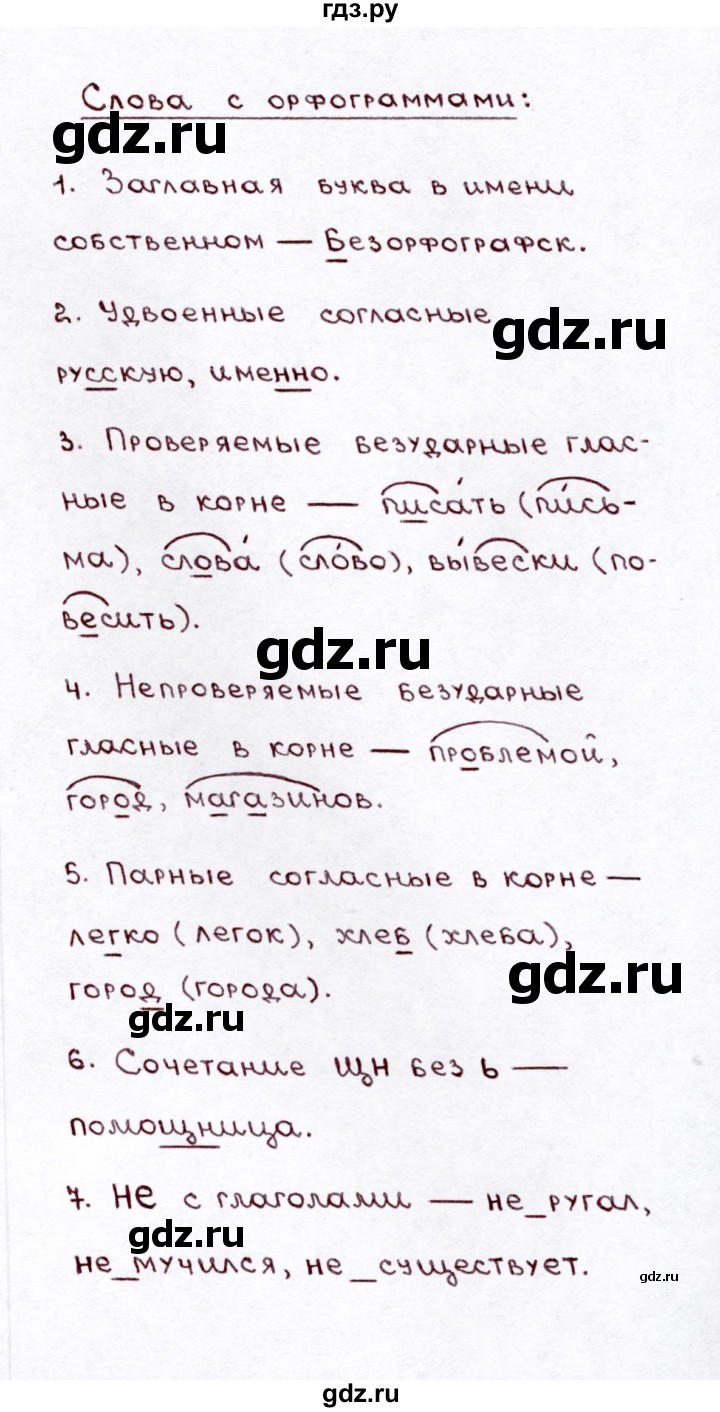 гдз.ру
Слова с орфограммами:
gdz.ru
1. Заглавная буква в имени
собственном — Безорфографск.
2. Удвоенные согласные
gdz.ru
русскую, именно.
3. Проверяемые безударные глас-
ные в корне — писа́ть (пи́сь-
ма), слова́ (сло́во), вы́вески (по-
весить).
gdz.ru
4. Непроверяемые безударные
гласные в корне — проблемой,
город, магазинов.
5. Парные согласные в корне —
легко (легок), хлеб (хлеба),
gdz.ru
город (города).
gdz.ru
6. Сочетание щн без ь —
помощница.
7. Не с глаголами — не_ругал,
gdz.ru
не_мучился, не_существует.
gdz.ru
gdz.ru